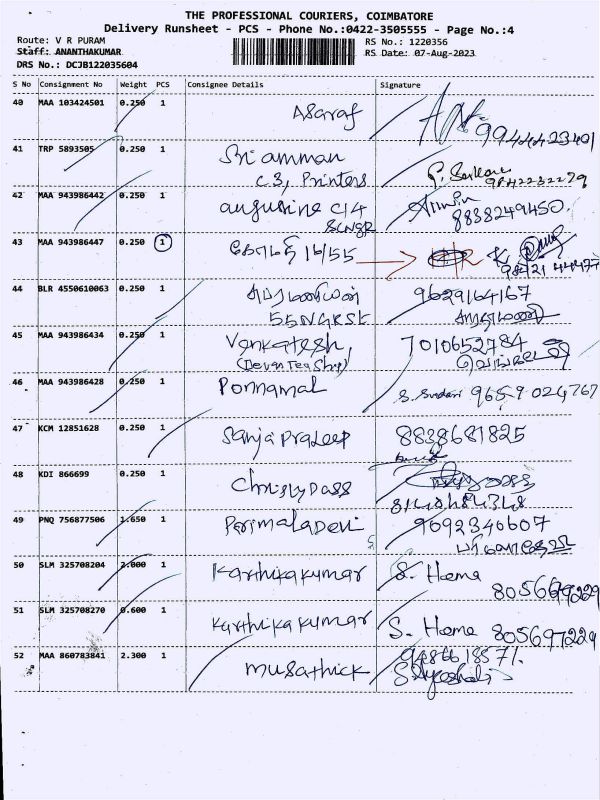 THE PROFESSIONAL COURIERS, COIMBATORE
Delivery Runsheet - PCS - Phone No.:0422-3505555 - Page No.:4
Route: V R PURAM
RS No.: 1220356
Staff: ANANTHAKUMAR
RS Date: 07-Aug-2023
DRS No.: DCJB122035604
S No Consignment No Weight PCS Consignee Details Signature
40 MAA 103424501 0.250 1 Asaraf
9944423401
41 TRP 5893505 0.250 1 Sri amman
C.S, Printers
9842232279
42 MAA 943986442 0.250 1 augusine C14
8838249450
43 MAA 943986447 0.250 1 16/55
44 BLR 4550610063 0.250 1 9629164167
45 MAA 943986434 0.250 1 Venkatesh, 7010652784
(Devan Tea Shop)
46 MAA 943986428 0.250 1 Ponnamal S. Sudari 9659024767
47 KCM 12851628 0.250 1 Sanja Pradeep 8838681825
48 KDI 866699 0.250 1 Christy Dass
49 PNQ 756877506 1.650 1 Parimala Devi 9692346607
50 SLM 325708204 2.000 1 Karthika kumar S. Hema
51 SLM 325708270 0.600 1 Karthika kumar S. Hema 8056971229
52 MAA 860783841 2.300 1 musathick 9486618571.